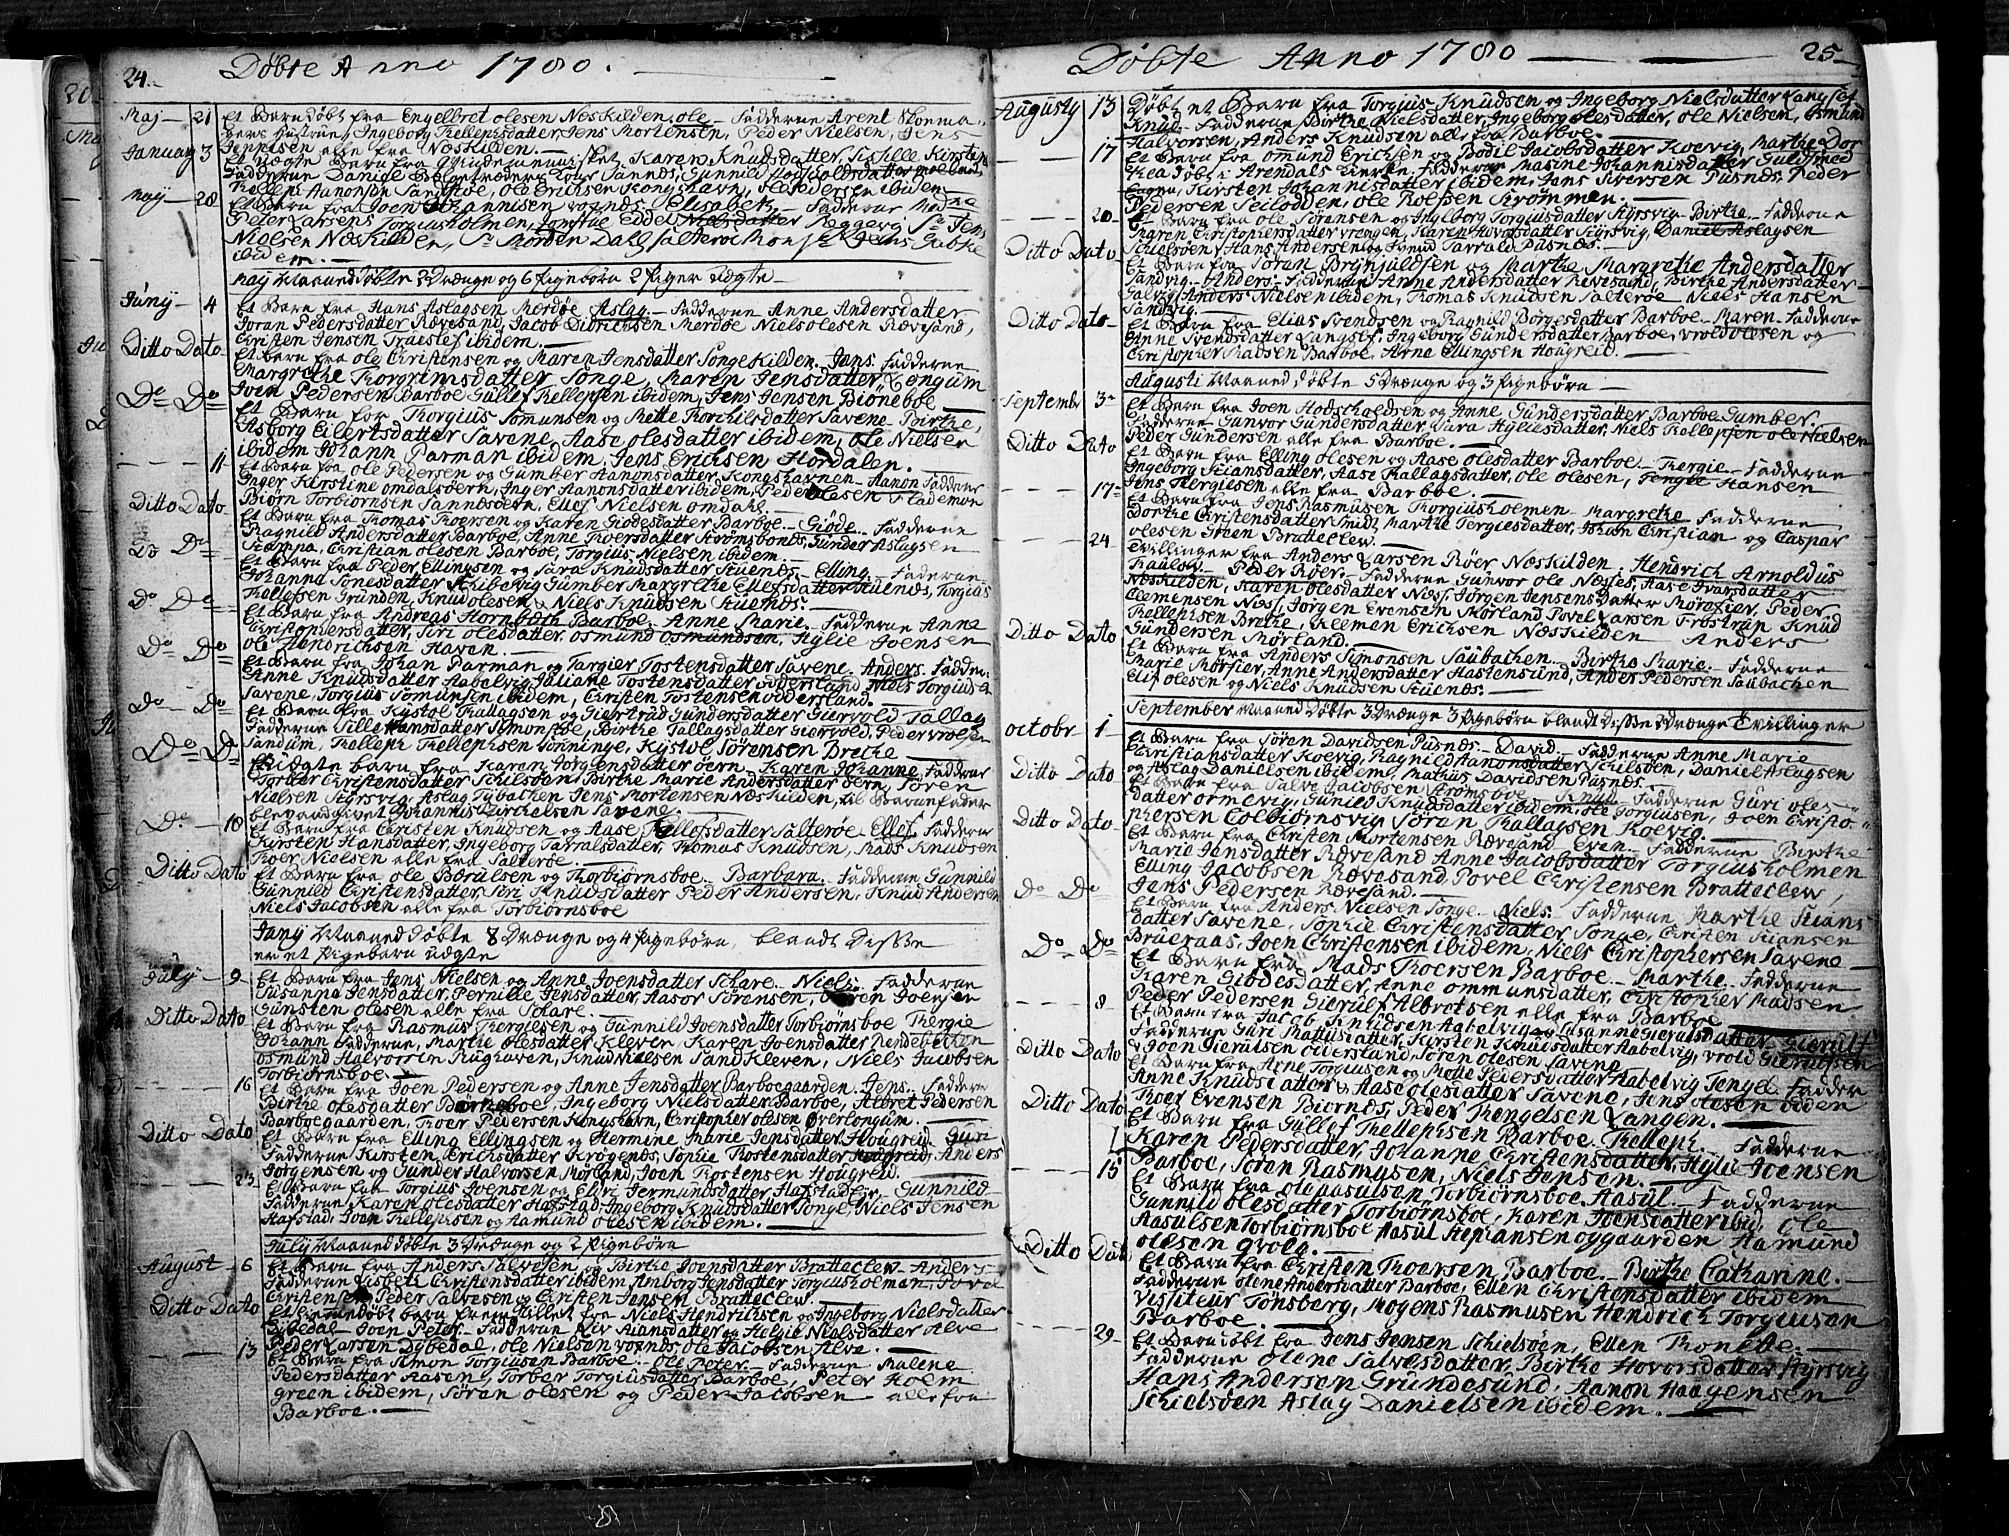 24.
Döbte Anno 1780.
Maj 21 Et Barn döbt fra Engelbret olesen Næskilden, ole Fadderne Arent
gers Hustrue, Ingeborg Kellephsdatter, Jens Mortensen, Peder Nielsen, Jens
Jennesen alle fra Næskilden.
January 3 Et uægte Barn fra Qvindemennisket Karen Knudsdatter, Sissille Kirstin
Fadderne Daniel
Kelleph Aanonsen Sandstöe, ole Erichsen Kongshavn, ole Pedersen ibidem
May 28 Et Barn fra Joen Johannisen voxnes, Elisabeth Fadderne Madme
Peter Larsens Torgiusholmen, Jomfrue Eddel Nielsdatter Peggevig Sr. Jens
Nielsen Næskilden, Sr. Morten Dahl Salteröe Jens Gabke
ibidem.
Maij Maaned döbte Drænge og 6 Pigebörn 2 Piger uægte
Juny 4 Et Barn fra Hans Aslagsen Merdöe Aslag. Fadderne Anne Andersdatter
Joran Pedersdatter Rævesand, Jacob Didrichsen Merdöe Niels olesen Rævesand,
Christen Jensen Traestef ibidem.
Ditto Dato Et barn fra ole Christensen og Maren Jensdatter Songekilden. Jens. Fadderne
Margrethe Thorgrimsdatter Songe, Maren Jensdatter Longum
Joen Pedersen Barboe Gullef Kellepsen ibidem, Jens Jensen Biöneboe
Do Do Et Barn for Thorgius Tomunsen og Mette Thorchilsdatter Savene Birthe,
Asborg Eilertsdatter Savene, Aase olesdatter ibidem, ole Nielsen
ibidem Johann Parman ibidem, Jens Erichsen Hordalen.
11 Et Barn fra ole Pedersen og Gumber Aanonsdatter, Kongshavnen Aanon Fadderne
Inger Kirstine omdalsöern, Inger Aanonsdatter ibidem, Peder olesen Flademoe
Biörn Torbiörnsen Sannösöern, Ellef Nielsen omdahl.
Ditto Dato Et Barn fra Thomas Thoersen og Karen Giödesdatter Barboe. Giöde. Fadderne
Ragnild Andersdatter Barboe, Anne Thoersdatter Strömsboens, Gunder Aslagsen
Kampa, Christian olesen Barboe, Torgius Nielsen ibidem.
Do Et Barn fra Peder Ellingsen og Sara Knudsdatter Stuenes. Elling. Fadderne
Johanna Tonesdatter Skibevig Gumber Margrethe Ellefsdatter Stuenes, Torgius
Thollefsen Grunden, Knud olesen & Niels Knudsen Stuenes.
Do Do Et Barn fra Andreas Hornboth Barboe. Anne Marie. Fadderne Anne
Christophersdatter, Siri olesdatter Osmund Osmundsen, Hylie Joensen
ole Hendrichsen Haven.
Do Do Et Barn fra Johan Parman og Targier Tostensdatter Savene Anders. Fadder:
Anne Knudsdatter Aabelvig Juliane Tostensdatter odderstand Niels Torgiuds
Savene, Torgius Tomunsen ibidem, Christen Tostensen oddersland.
Do Do Et Barn fra Kystol Thallagsen og Giertrud Gundersdatter Giervold Tallag
Fadderne Sille Hansdatter Simonstöe, Birthe Tallagsdatter Giervold, Peder
Sandum, Kelleph Kellephsen Tonninge, Kystol Sörensen Brecke
Do Do Et uægte barn fra Karen Jörgensdatter öern. Karen Johanne Fadder
Torber Christensdatter Schilsöen, Birthe Marie Andersdatter öern, Sören
Nielsen Styrsvig, Aslag Tybacken Jens Mortensen Næskilden, til Barnefader
blev angivet Johannis Savene.
Do 18 Et Barn fra Christen Knudsen og Aase Ellefsdatter Salteröe Ellef. Fadderne
Kirsten Hansdatter, Ingeborg Tarralsdatter, Thomas Knudsen, Mads Knudsen
Thoer Nielsen alle fra Salteröe.
Ditto Dato Et Barn fra ole Börulsen og Thorbiörnsboe Barbara. Fadderne Gunnild
Gunnild Christensdatter, Siri Knudsdatter Peder Andersen, Knud Andersen
Niels Jacobsen alle fra Torbiörnsboe
Juny Maaned Döbte 8 Drænge og 4 Pigebörn, blandt Disse
er et Pigebarn uægte
July 9 Et Barn fra Jens Nielsen og Anne Joensdatter Schare. Niels. Fadderne
Susanna Jensdatter, Pernille Jensdatter, Aasor Sörensen, Sören Joensen
Gunsten olesen alle fra Schare.
Ditto Dato Et Barn fra Rasmus Thergiesen og Gunnild Joensdatter Torbiörnsboe Thergie
Johann Fadderne, Marthe olesdatter Kleven Karen Joensdatter Rendebechen
Osmund Halvorsen Rughaven, Knud Nielsen Sandkleven, Niels Jacobsen
Torbiörnsboe.
16 Et Barn fra Joen Pedersen og Anne Jensdatter Barboegaarden. Jens. Fadderne
Birthe olesdatter Börneboe, Ingeborg Nielsdatter Barboe, Albret Pedersen
Barboegaarden, Thoer Pedersen Kongshavn, Christopher olesen Overlongum.
Ditto Dato Et Barn fra Elling Ellingsen og Hermine Marie Jensdatter Hougreid. Guri
Fadderne Kirsten Erichsdatter Krögenes, Sophie Thostensdatter Hougreid, Anders
Jörgensen og Gunder Halvorsen Morland, Joen Thostensen Hougreid.
23 Et Barn fra Torgius Joensen og Eldri Germundsdatter Hafstad. Gunnild
Fadderne Karen olesdatter Hafstad, Ingeborg Knudsdatter Songe, Niels Jensen
Hafstad, Joen Kellephsen og Aamund olesen ibidem.
July Maaned döbte 3 Drænge og 2 Pigebörn
August 6 Et Barn fra Anders Salvesen og Birthe Joensdatter Brattecleu. Anders
Fadderne Lisbeth Christensdatter ibidem Anborg Jensdatter Torgiusholmen, Povel
Christensen Peder Salvesen og Christen Jensen Brattecleu.
Ditto Dato Et hiemmedöbt barn fra Niels Hendrichsen og Ingeborg Nielsdatter
Dybedal Joen Peter. Fadderne Siv Kiansdatter og Helgie Nielsdatter Alve
Peder Larsen Dybedal, ole Nielsen voxnes, ole Jacobsen Alve.
13 Et Barn fra Simon Torgiusen Barboe. Ole Peter. Fadderne Malene
Pedersdatter Aasen, Torber Torgiusdatter Barboe, Peter Holm
green ibidem, Sören olesen og Peder Jacobsen alle fra
Barboe.
Döbte Anno 1780 25
Augusty 13 Döbt et Barn fra Torgius Knudsen og Ingeborg Nielsdatter Langsef
Knud. Fadderne Birthe Nielsdatter, Ingeborg olesdatter, ole Nielsen, Osmund
Halvorsen, Anders Knudsen alle fra Barboe.
17 Et Barn fra Omund Erichsen og Bodil Jacobsdatter Koevig, Marthe Dor
thea Döbt i Arendals Kirke, Fadderne Masine Johannisdatter Guldsmed
Kirsten Johannisdatter ibidem, Jens Siversen Pusnes, Peder
Pedersen Seilodden, ole Roelsen Strömmen.
20 Et Barn fra ole Sörensen og Hylborg Torgiusdatter Styrsvig. Birthe. Fadderne
Karen Christophersdatter vrengen, Karen Hovorsdatter Styrsvig, Daniel Aslagsen
Schielsöen, Hans Andersen og Svend Tarrald. Pusnes.
Ditto Dato Et Barn fra Sören Brynjuldsen og Marthe Margrethe Andersdatter
Sandvig. Anders. Fadderne Anne Andersdatter Rævesand, Birthe Andersdatter
Galvig Anders Nielsen ibidem, Thomas Knudsen Salteröe Niels Hansen
Sandvig.
Ditto Dato Et Barn fra Elias Svendsen og Ragnild Börgesdatter Barboe. Maren. Fadderne
Anne Svendsdatter Langsef, Ingeborg Gundersdatter Barboe, vrold olesen og
Christopher Madsen Barboe, Arne Ellingsen Hougreid.
Augusti Maaned döbte 5 Drænge og 3 Pigebörn
September 3 Et Barn fra Joen Hodscholdsen og Anne Gundersdatter Barboe. Gumber.
Fadderne Gunvor Gundersdatter, Sara Hyliusdatter, Niels Kellephsen ole Nielsen
Peder Gundersen alle fra Barboe.
Ditto Dato Et Barn fra Elling olesen og Aase olesdatter Barboe. Thergie. Fadderne
Ingeborg Stiansdatter, Aase Thallagsdatter, ole olesen, Tengel Hansen
Jens Thergiesen alle fra Barboe.
17 Et Barn fra Jens Rasmusen Thorgiusholmen. Margrethe Fadderne
Dorthe Christensdatter Smid, Marthe Tergiesdatter, Johan Christian og Caspar
olesen Green Brattecleu.
24 Tvillinger fra Anders Larsen Röer Næskilden. Hendrich Arnoldus
Peder Röer. Fadderne Gunvor ole Næsses, Aase Ivarsdatter
Næskilden, Karen olesdatter Næss, Jörgen Jensens Datter Möretier, Peder
Clemensen Næss, Jörgen Evensen Mörland Povel Larsen Frostrup Knud
Kellephsen Breke, Kleemen Erichsen Næskilden Anders
Gundersen Mörland.
Ditto Dato Et Barn fra Anders Simonsen Saubachen. Birthe Marie. Fadderne
Marie Morsier, Anne Andersdatter Hastensund, Anders Pedersen Saubachen
Elif olesen og Niels Knudsen Stuenes.
September Maaned Döbte 3 Drænge 3 Pigebörn blandt Disse 2 Drænge Tvillinger
octobr 1 Et Barn fra Sören Davidsen Pusnes. David. Fadderne Anne Marie
Christiansdatter Koevig, Ragnild Aanonsdatter Schilsöen, Daniel Aslagsen
og Aslag Danielsen ibidem, Mathius Davidsen Pusnes.
Ditto Dato Et Barn fra Salve Jacobsen Strömsboe. Knud. Fadderne Guri oles
datter ormevig, Gunild Knudsdatter ibidem, ole Torgiusen, Joen Christo
phersen Colbiörnsvig, Sören Thallagsen Koevig.
Ditto Dato Et Barn fra Christen Mortensen Rævesand Even. Fadderne Birthe
Marie Jensdatter Rævesand Anne Jacobsdatter Torgiusholmen
Elling Jacobsen Rævesand, Povel Christensen Bratteclew,
Jens Pedersen Rævesand.
Do Do Et Barn fra Anders Nielsen Songe. Niels. Fadderne Marthe Stians
datter Savene, Sophie Christensdatter Songe, Christen Stiansen
Brueraas, Joen Christensen ibidem, Niels Christophersen Savene
Do Do Et Barn fra Mads Thoersen Barboe. Marthe. Fadderne
Karen Giödesdatter, Anne Ommunsdatter, Christopher Madsen
Peder Pedersen Gierulf Albretsen alle fra Barboe.
8 Et Barn fra Jacob Knudsen Aabelvig og Susanne Gierulsdatter. Gierulf
Fadderne Guri Mathisdatter, Kirsten Knudsdatter Aabelvig, vrold Gierulfsen
& Joen Gierulsen oddersland, Sören olesen Savene
Ditto Dato Et Barn fra Arne Torgiusen og Mette Pedersdatter Aabelvig Tengel Fadder
Anne Knudsdatter & Aase olesdatter Savene, Jens olesen ibidem
Thoer Evensen Biornes, Peder Thengelsen Langen.
Ditto Dato Et Barn fra Gullef Thellephsen Barboe. Thelleph. Fadderne
Karen Pedersdatter, Johanne Christensdatter, Hylie Joensen
Barboe, Sören Rasmusen, Niels Jensen.
15 Et Barn fra ole Aasulsen Torbiörnsboe. Aasul. Fadderne
Gunnild olesdatter Torbiörnsboe, Karen Joensdatter ibid, ole
Aasulsen Torbiörnsboe Aasul Stephansen oygaarden Aamund
olesen
Ditto Dato Et Barn fra Christen Thoersen Barboe. Birthe Catharine.
Fadderne olene Andersdatter Barboe, Ellen Christensdatter ibidem
Vissiteur Tönsberg, Mogens Rasmusen Hendrich Torgiusen
Barboe.
29 Et Barn döbt fra Jens Jensen Schielsöen, Ellen Thonette.
Fadderne olene Salvesdatter, Birthe Hovorsdatter Styrsvig
Hans Andersen Grundesund, Aanon Haagensen
Schielsöen Aslag Danielsen ibidem.